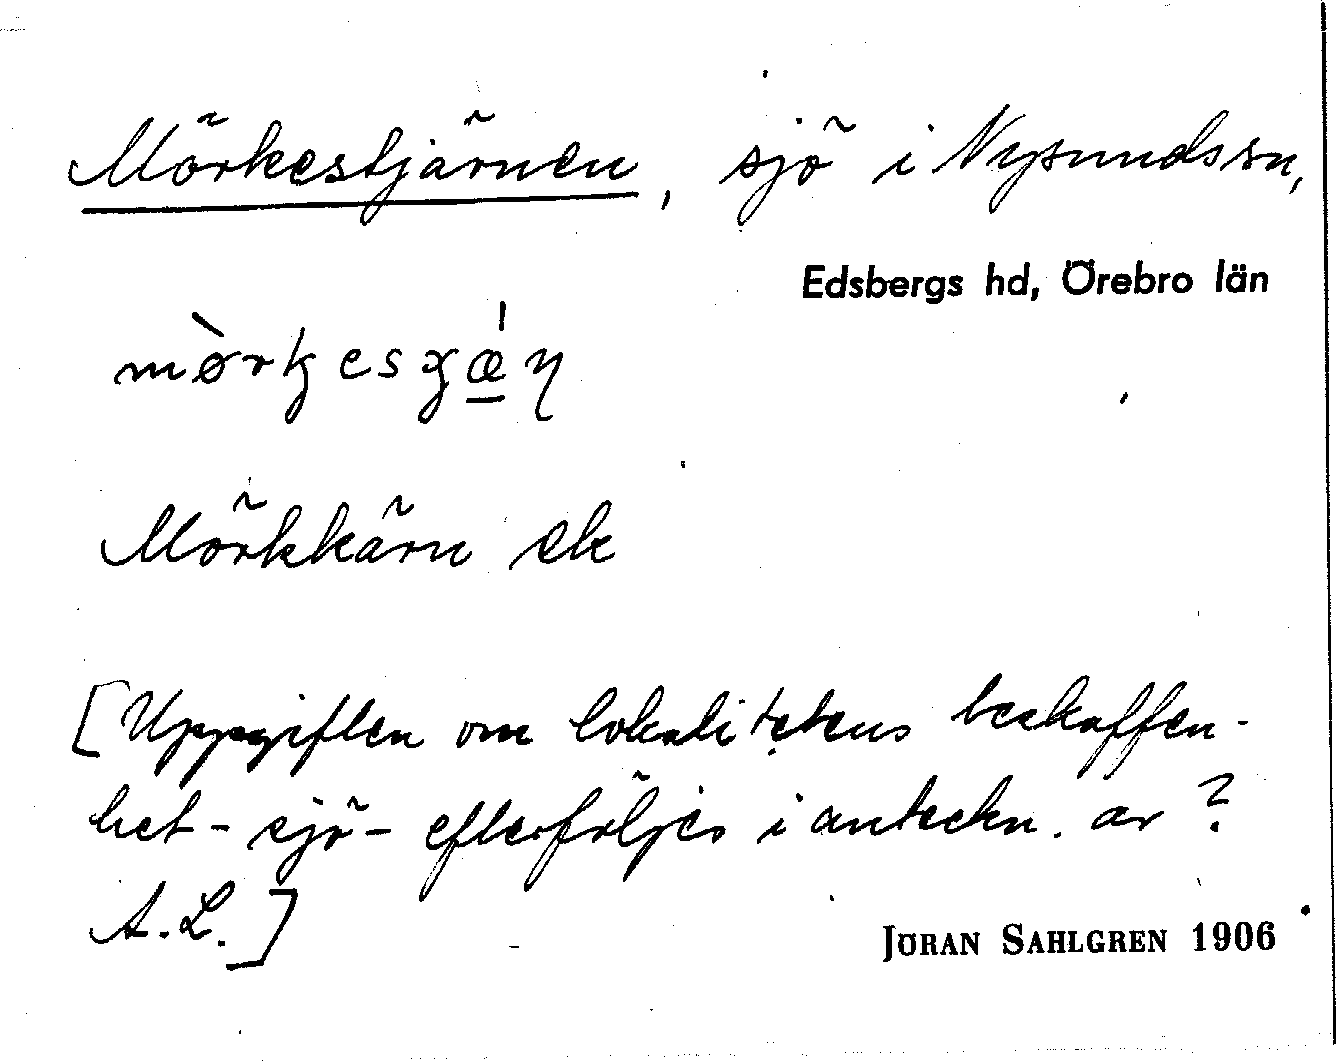 Mörkestjärnen, sjö i Nysundssn,
Edsbergs hd, Örebro län
mø̀rkesχǽn
Mörkkärn ek
[Uppgiften om lokalitetens beskaffen-
het - sjö - efterföljes i anteckn. av ?
A.L.]
JÖRAN SAHLGREN 1906